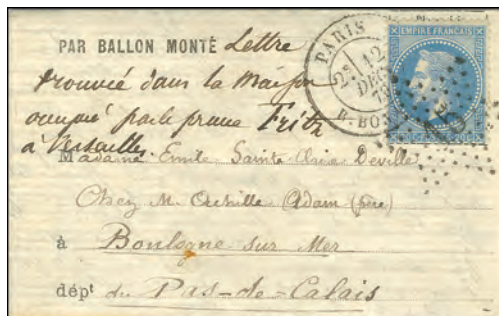 PAR BALLON MONTÉ Lettre
trouvée dans la Maison
occupé par le prince Fritz
à Versailles
Madame Emile Sainte-Claire Deville
Chez M. Achille Adam (père)
à Boulogne sur Mer
dépt du Pas-de-Calais
PARIS
12
DEC.
EMPIRE FRANÇAIS